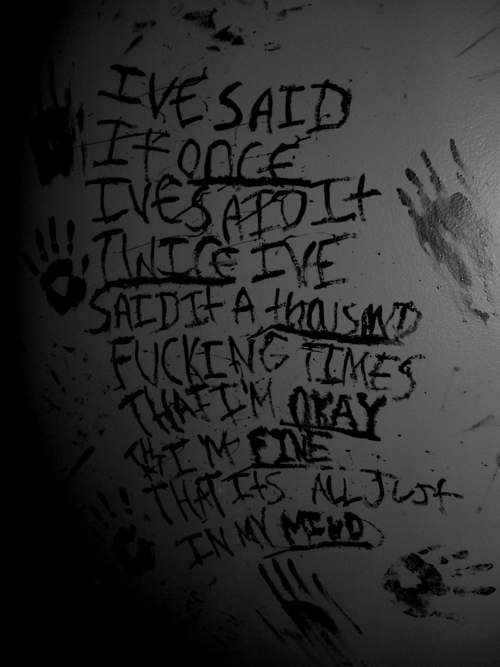 IVE SAID
It ONCE
IVE SAID It
TWICE IVE
SAID It A thOUSAND
FUCKING TIMES
THAT I'M OKAY
tHt I'M FINE
THAT ItS ALL JUSt
IN MY MIND